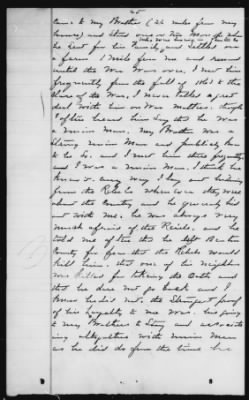 25
came to my Brother (25 miles from my
house) and staid one or two Months when
he sent for his Family and settled on
a farm 1 mile from me and remained
until the War was over. I met him
frequently from the fall of 1861 to the
close of the War, I never talked a great
deal with him on War matters though
often heard him say that he was
a Union man. My Brother was a
Strong Union man and publicly known
to be so. and I met him there frequently
and I was a Union man. I think he
knew it. every way I lay out hiding
from the Rebels whenever they were
about the Country and he generally hid
out with me. he was always very
much afraid of the Rebels. and he
told me often that he left Benton
County for fear that the Rebels would
kill him. that one of his neighbors
was killed for taking the Oath and
that he dare not go back and I
know he did not. the strongest proof
of his Loyalty to me was his going
to my Brothers to stay and associat
ing altogether with Union men
as he did do from the time he